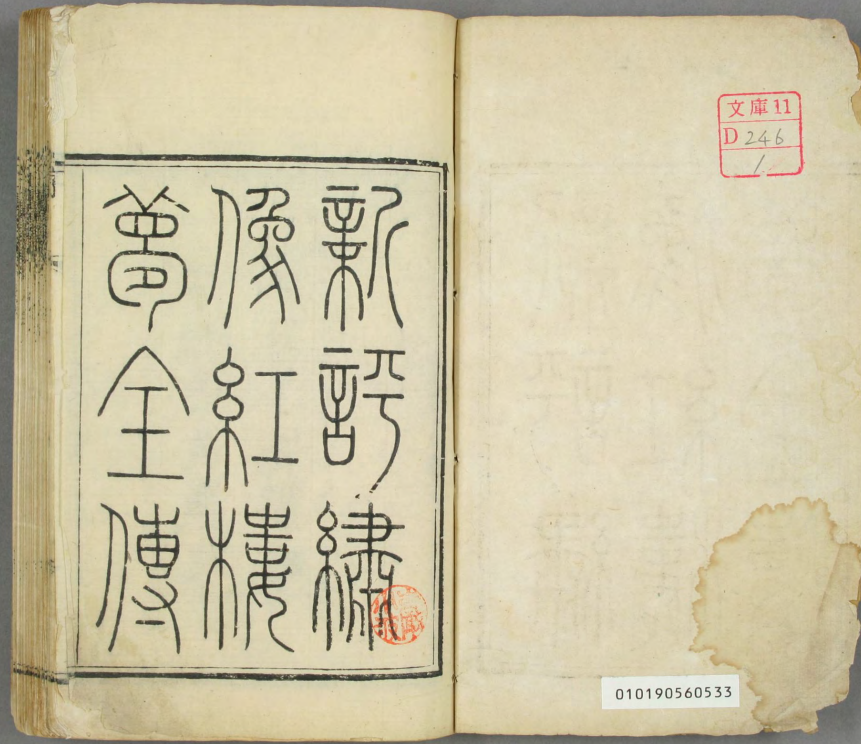 新評繡
像紅樓
夢全傳
文庫11
D 246
1
010190560533